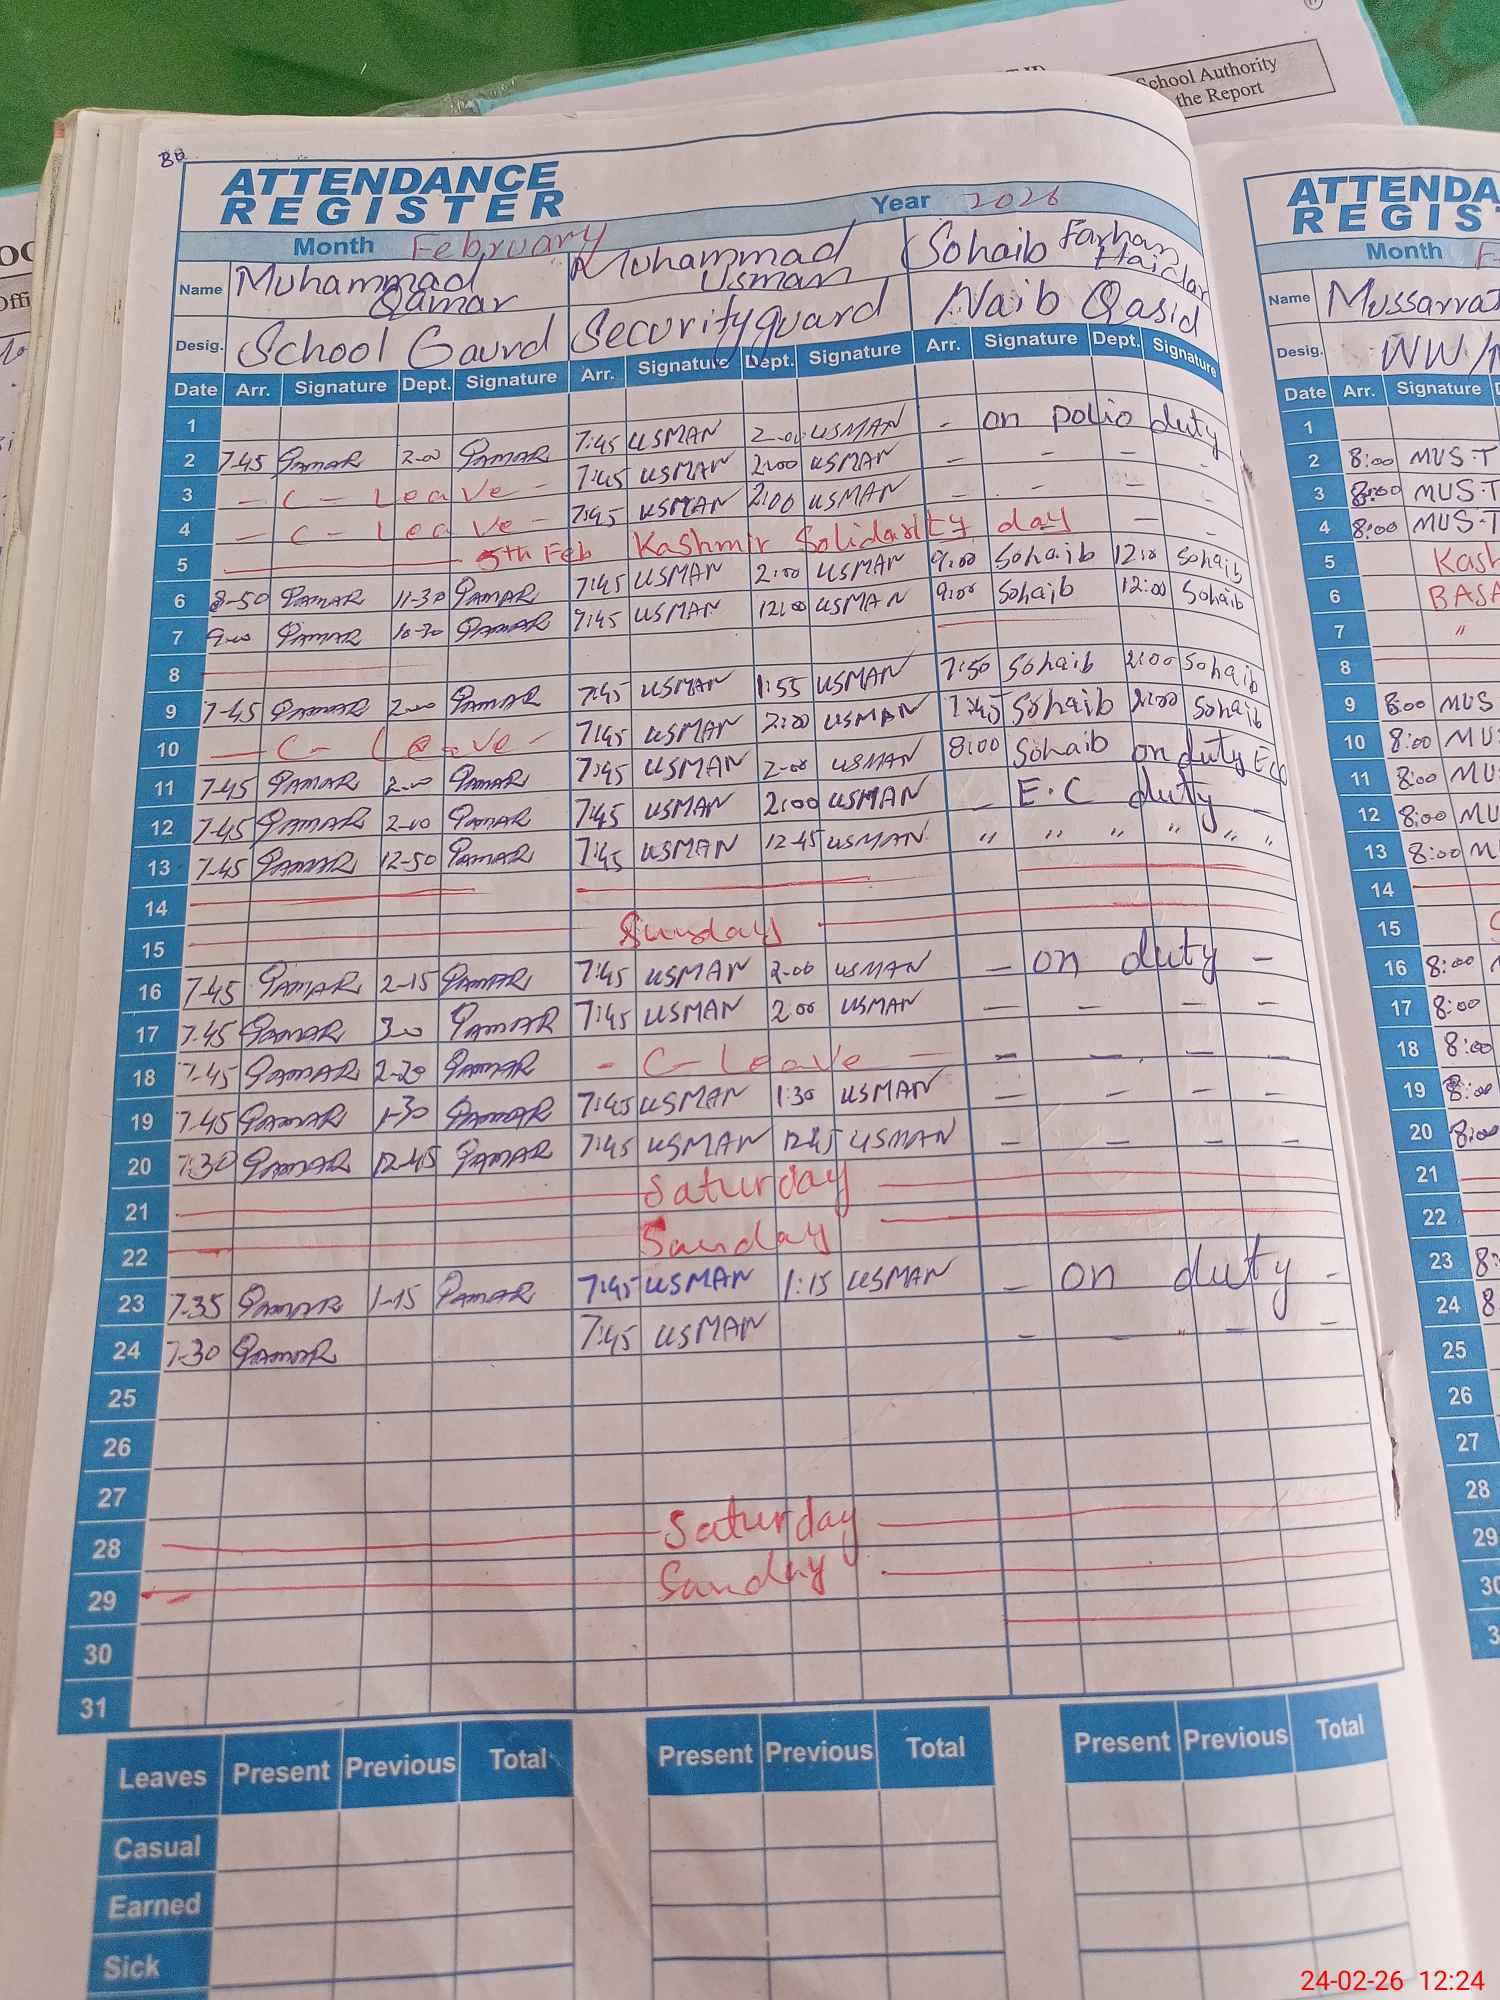 School Authority
the Report
ATTENDANCE
REGISTER
Year 2026
Month February
Name Muhammad Qamar Muhammad Usman Sohaib Farhan Haidar
Desig. School Gaurd Security guard Naib Qasid
Date Arr. Signature Dept. Signature Arr. Signature Dept. Signature Arr. Signature Dept. Signature
1
2 7-45 QAMAR 2-00 QAMAR 7:45 USMAN 2-00 USMAN - on polio duty
3 - C - Leave - 7:45 USMAN 2:00 USMAN - - - -
4 - C - Leave - 7:45 USMAN 2:00 USMAN - - - -
5 5th Feb Kashmir Solidarity day - -
6 8-50 QAMAR 11-30 QAMAR 7:45 USMAN 2:00 USMAN 9:00 Sohaib 12:00 Sohaib
7 9-00 QAMAR 10-30 QAMAR 9:45 USMAN 12:00 USMAN 9:00 Sohaib 12:00 Sohaib
8
9 7-45 QAMAR 2-00 QAMAR 7:45 USMAN 1:55 USMAN 7:50 Sohaib 2:00 Sohaib
10 - C - Leave - 7:45 USMAN 2:00 USMAN 7:45 Sohaib 2:00 Sohaib
11 7-45 QAMAR 2-00 QAMAR 7:45 USMAN 2-00 USMAN 8:00 Sohaib on duty
12 7-45 QAMAR 2-00 QAMAR 7:45 USMAN 2:00 USMAN - E.C duty -
13 7-45 QAMAR 12-50 QAMAR 7:45 USMAN 12-45 USMAN " " " " " "
14
15 Sunday
16 7-45 QAMAR 2-15 QAMAR 7:45 USMAN 2-00 USMAN - on duty -
17 7-45 QAMAR 3-00 QAMAR 7:45 USMAN 2 00 USMAN - - - -
18 7-45 QAMAR 2-20 QAMAR - C - Leave - - - - -
19 7-45 QAMAR 1-30 QAMAR 7:45 USMAN 1:30 USMAN - - - -
20 7:30 QAMAR 12-45 QAMAR 7:45 USMAN 12:45 USMAN - - - -
21 Saturday
22 Sunday
23 7-35 QAMAR 1-15 QAMAR 7:45 USMAN 1:15 USMAN - on duty -
24 7-30 QAMAR 7:45 USMAN - - " - -
25
26
27
28 Saturday
29 Sunday
30
31
Leaves Present Previous Total Present Previous Total Present Previous Total
Casual
Earned
Sick
ATTENDA
REGIST
Month F
Name Mussarrat
Desig. WW/
Date Arr. Signature
1
2 8:00 MUS.T
3 8:00 MUS.T
4 8:00 MUS.T
5 Kash
6 BASA
7 "
8
9 8:00 MUS
10 8:00 MU
11 8:00 MU
12 8:00 MU
13 8:00 M
14
15 S
16 8:00
17 8:00
18 8:00
19 8:00
20 8:00
21
22
23 8:
24 8
25
26
27
28
29
30
3
24-02-26 12:24